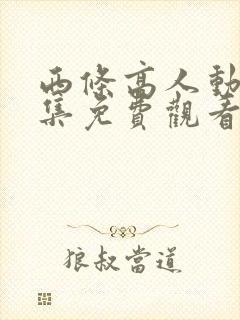 两條高人動
集免費觀看
狼叔當道